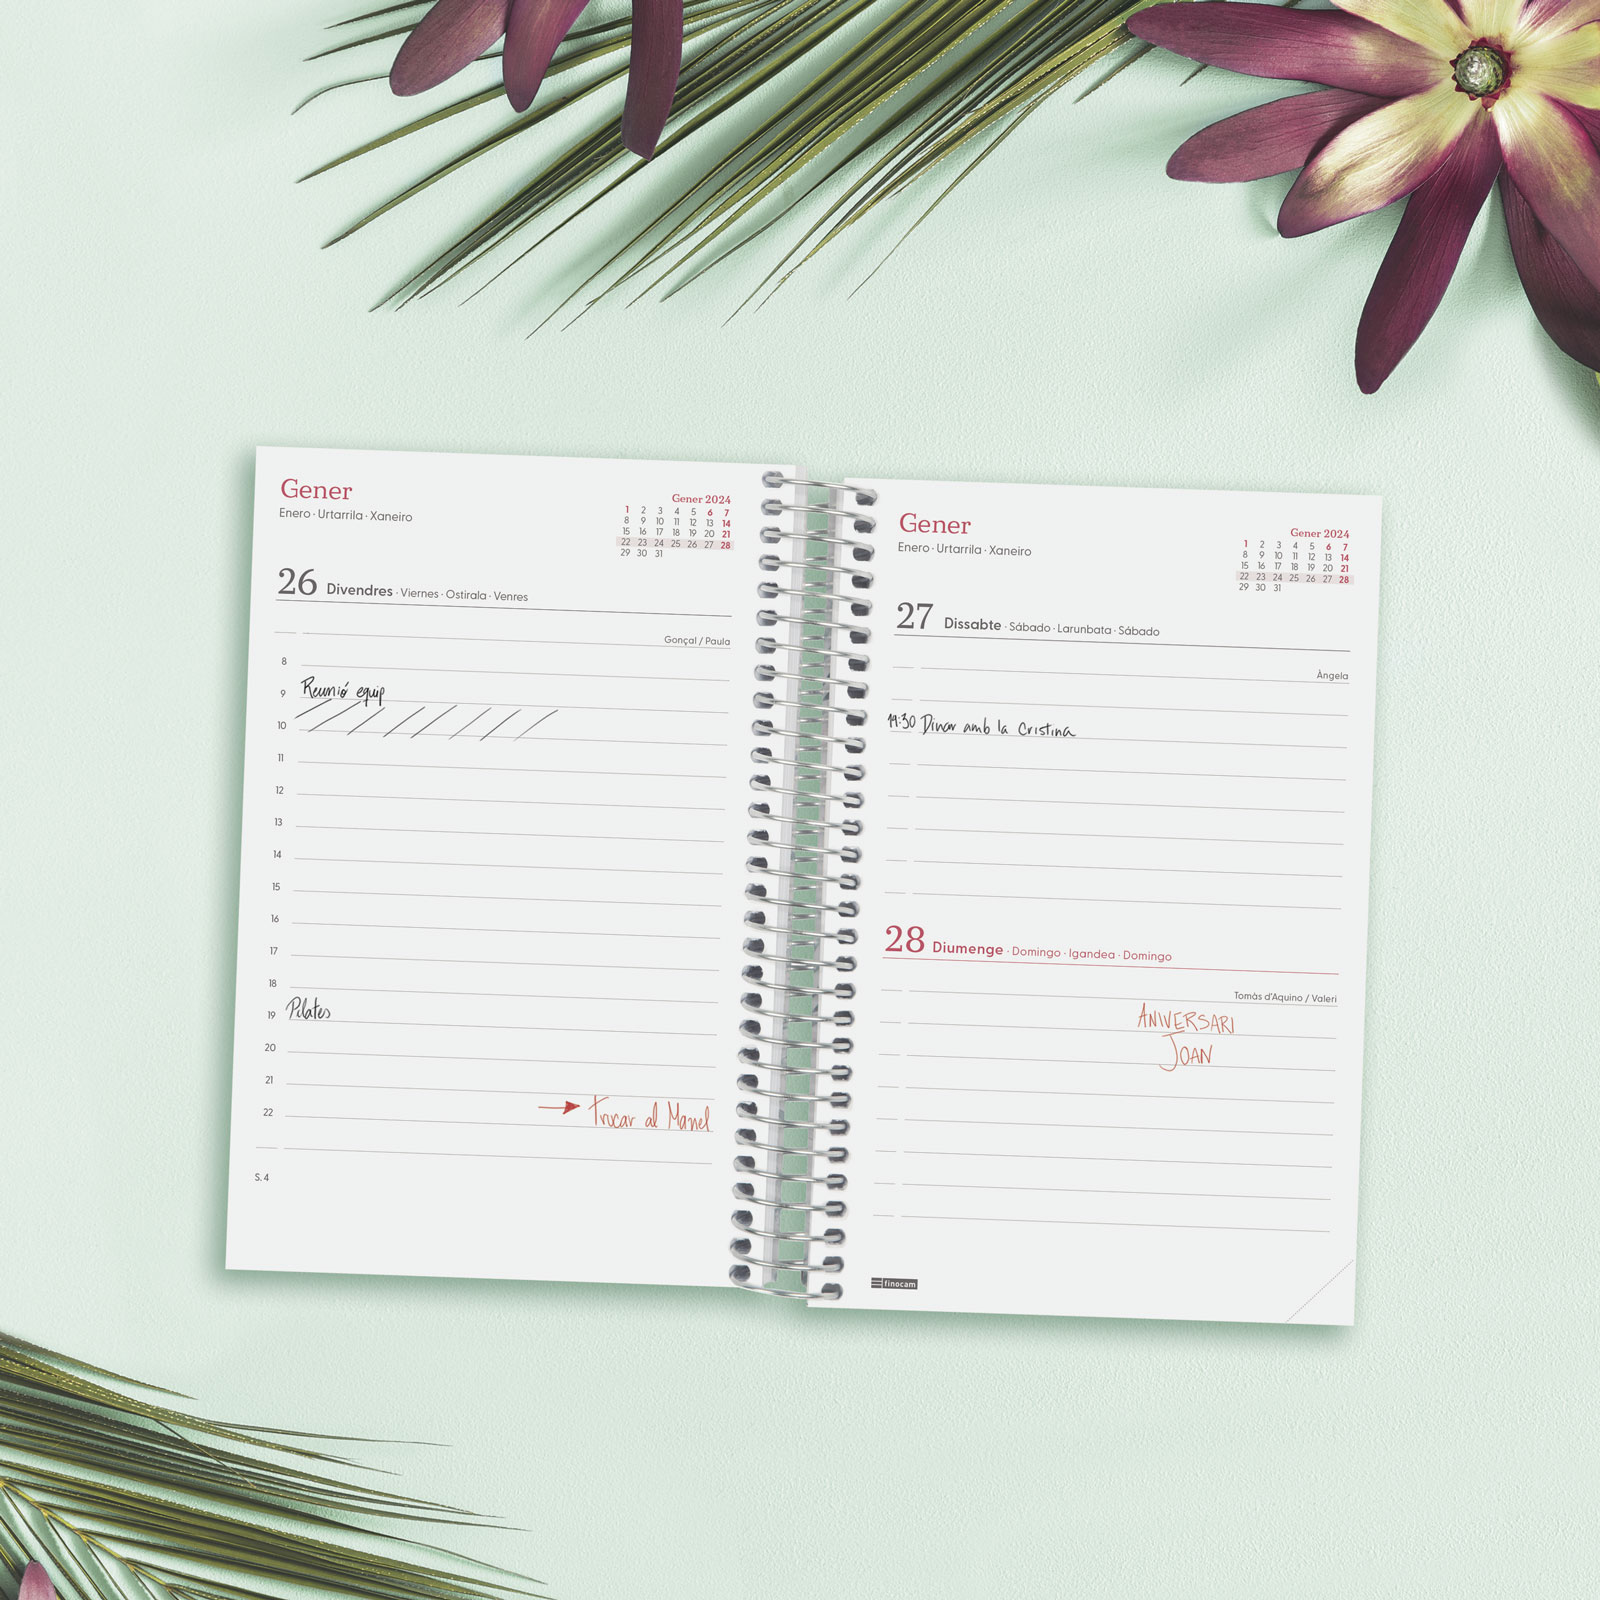 Gener
Enero · Urtarrila · Xaneiro
Gener 2024
1 2 3 4 5 6 7
8 9 10 11 12 13 14
15 16 17 18 19 20 21
22 23 24 25 26 27 28
29 30 31
26 Divendres · Viernes · Ostirala · Venres
Gonçal / Paula
8
9 Reunió equip
10
11
12
13
14
15
16
17
18
19 Pilates
20
21
22 Trucar al Manel
S. 4
Gener
Enero · Urtarrila · Xaneiro
Gener 2024
1 2 3 4 5 6 7
8 9 10 11 12 13 14
15 16 17 18 19 20 21
22 23 24 25 26 27 28
29 30 31
27 Dissabte · Sábado · Larunbata · Sábado
Àngela
14:30 Dinar amb la Cristina
28 Diumenge · Domingo · Igandea · Domingo
Tomàs d'Aquino / Valeri
ANIVERSARI
JOAN
finocam